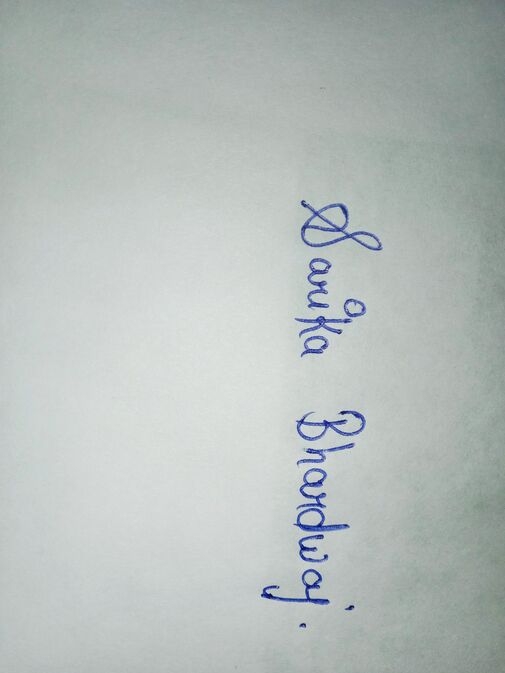 Sarika Bhardwaj.